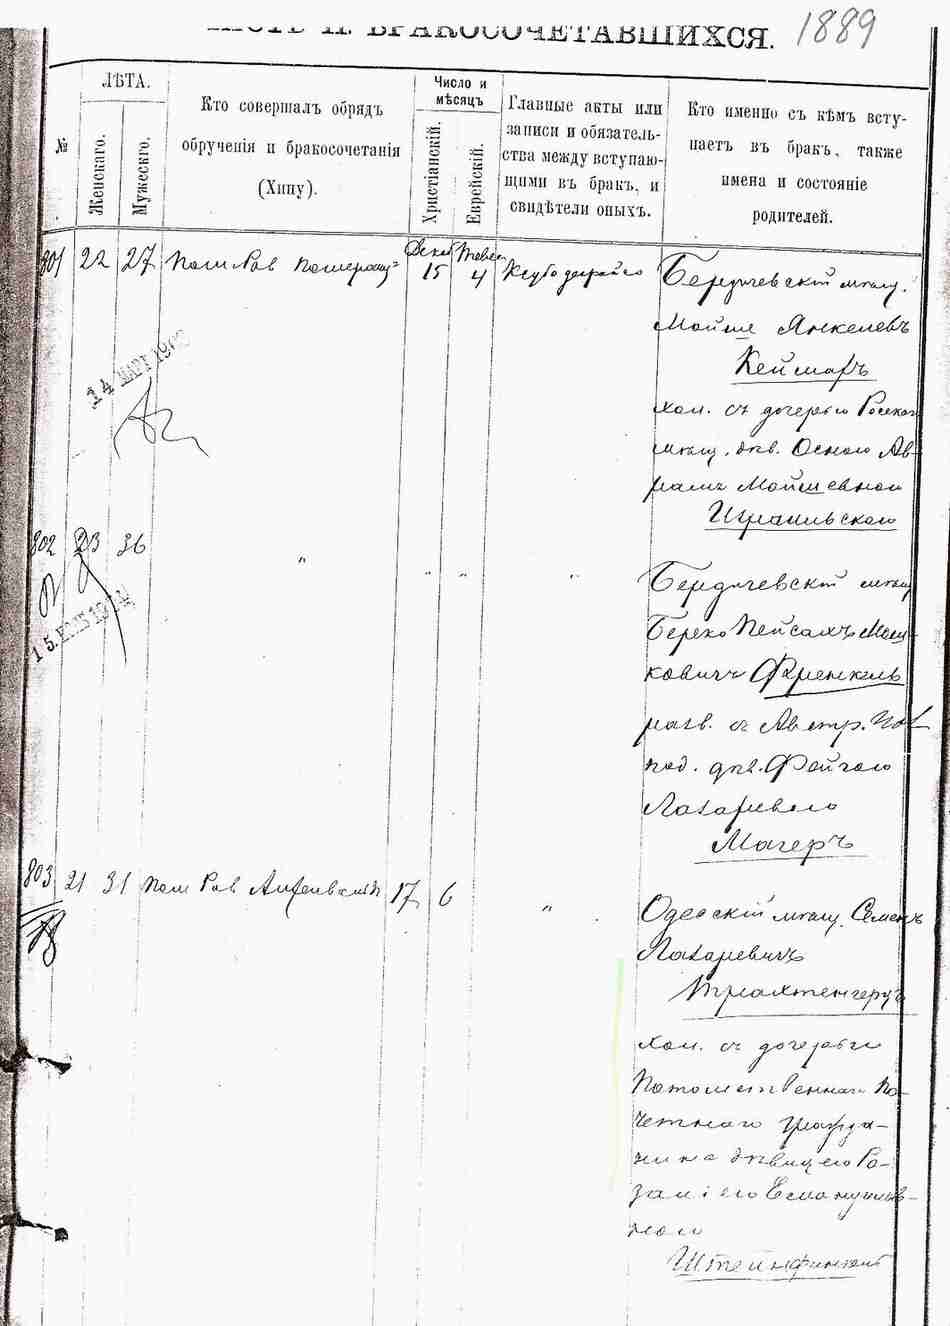 ЧАСТЬ II. БРАКОСОЧЕТАВШИХСЯ.
1889
№
ЛѢТА.
Женскаго.
Мужескго.
Кто совершалъ обрядъ
обрученія и бракосочетанія
(Хипу).
Число и
мѣсяцъ
Христіанскій.
Еврейскій.
Главные акты или
записи и обязатель-
ства между вступаю-
щими въ бракъ, и
свидѣтели оныхъ.
Кто именно съ кѣмъ всту-
паетъ въ бракъ, также
имена и состояніе
родителей.
801 22 27 Пом Рав Померанц Декаб 15 4
Бердичевскій мѣщ.
Мойше Янкелевъ
Кеймаръ
хол. съ дочерью
мѣщ. дѣв. Осною Ав-
рамъ Мойшевною
14 МАРТ
802 23 36 „ „ „ „
Бердичевскій мѣщ
Берко Пейсахъ Мош-
ковичъ Френкель
разв. съ Австр.
под. дѣв. Фейгою
Лазаревою
Магеръ
803 21 31 Пом Рав 17 6 „
Одесскій мѣщ. Семенъ
Лазаревичъ
Трахтенгерцъ
хол. съ дочерью
Потомственнаго По-
четнаго гражда-
нина дѣвицею Ро-
заліею Емануилов-
ною